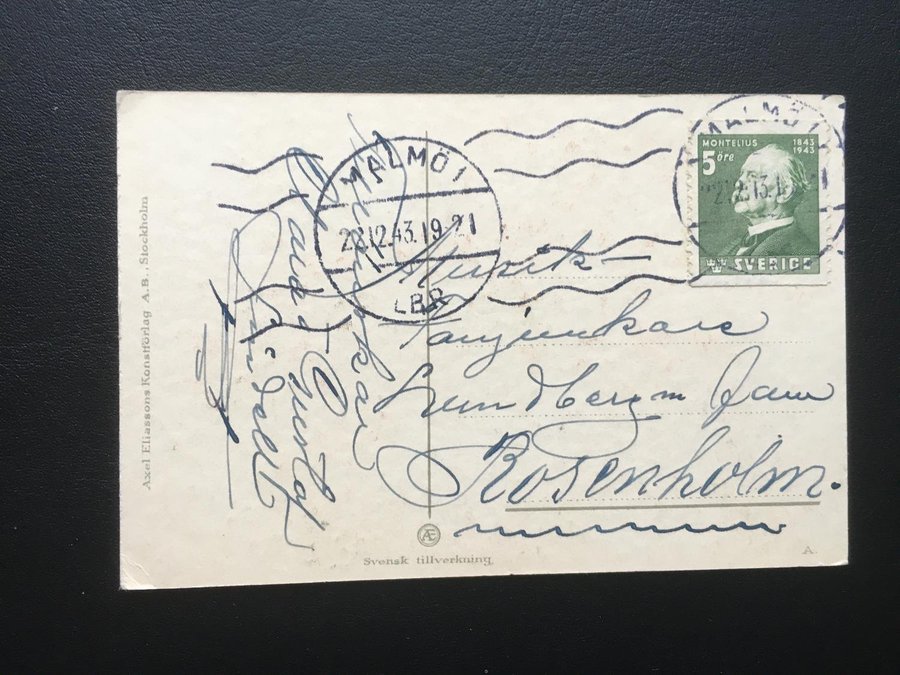 Axel Eliassons Konstförlag A.B., Stockholm
MALMÖ 1
22.12.43.19-21
LBR
MALMÖ 1
MONTELIUS 1843 1943
5 öre
SVERIGE
Önskar
Gustaf
Lindell
Musik-
Fanjunkare
Lundberg m fam
Rosenholm.
Æ
Svensk tillverkning
A.